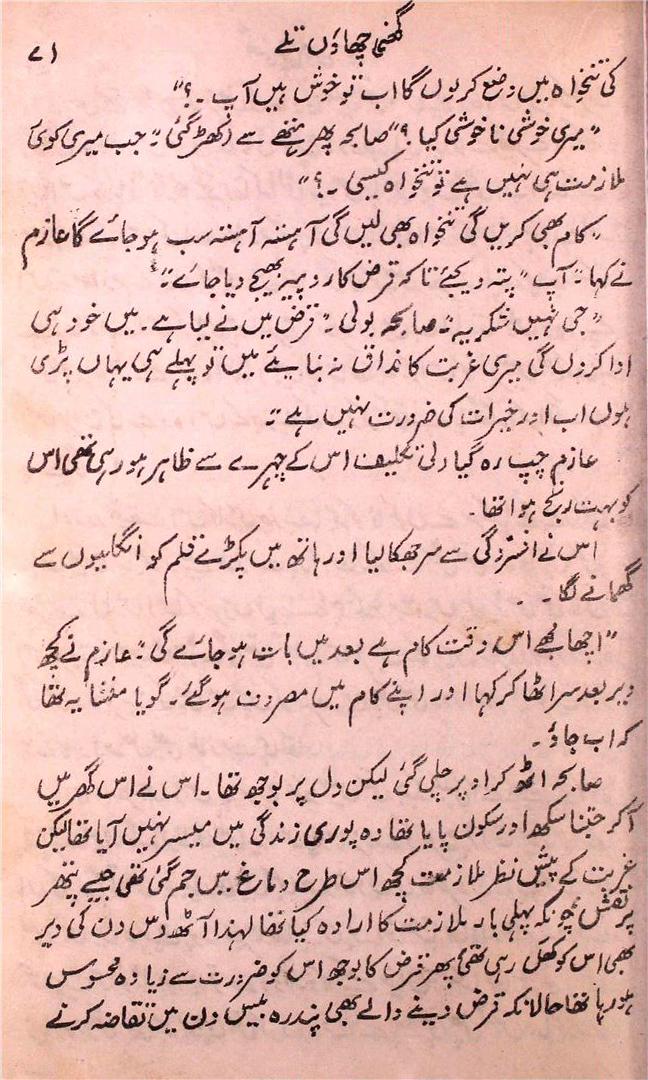 گھنی چھاؤں تلے
۷۱
کی تنخواہ میں وضع کر لوں گا اب تو خوش ہیں آپ ۔؟"
"میری خوشی ناخوشی کیا؟" صابحہ پھر ہتھے سے اکھڑ گئی "جب میری کوئی
ملازمت ہی نہیں ہے تو تنخواہ کیسی ۔؟"
"کام بھی کریں گی تنخواہ بھی لیں گی آہستہ آہستہ سب ہو جائے گا عازم
نے کہا "آپ" پتہ دیجئے تاکہ قرض کا روپیہ بھیج دیا جائے"
"جی نہیں شکریہ" صابحہ بولی "قرض میں نے لیا ہے۔ میں خود ہی
ادا کروں گی میری غربت کا مذاق نہ بنایئے میں تو پہلے ہی یہاں پڑی
ہوں اب اور خیرات کی ضرورت نہیں ہے"
عازم چپ رہ گیا دلی تکلیف اس کے چہرے سے ظاہر ہو رہی تھی اس
کو بہت رنج ہوا تھا۔
اس نے افسردگی سے سر جھکا لیا اور ہاتھ میں پکڑے قلم کو انگلیوں سے
گھمانے لگا۔
"اچھا مجھے اس وقت کام ہے بعد میں بات ہو جائے گی" عازم نے کچھ
دیر بعد سر اٹھا کر کہا اور اپنے کام میں مصروف ہو گئے۔ گویا منشا یہ تھا
کہ اب جاؤ۔
صابحہ اٹھ کر اوپر چلی گئی لیکن دل پر بوجھ تھا۔ اس نے اس گھر میں
آ کر جتنا سکھ اور سکون پایا تھا وہ پوری زندگی میں میسر نہیں آیا تھا لیکن
غربت کے پیش نظر ملازمت کچھ اس طرح دماغ میں جم گئی تھی جیسے پتھر
پر نقش چونکہ پہلی بار ملازمت کا ارادہ کیا تھا لہذا آٹھ دس دن کی دیر
بھی اس کو کھل رہی تھی پھر قرض کا بوجھ اس کو ضرورت سے زیادہ محسوس
ہو رہا تھا حالانکہ قرض دینے والے بھی پندرہ بیس دن میں تقاضہ کرنے